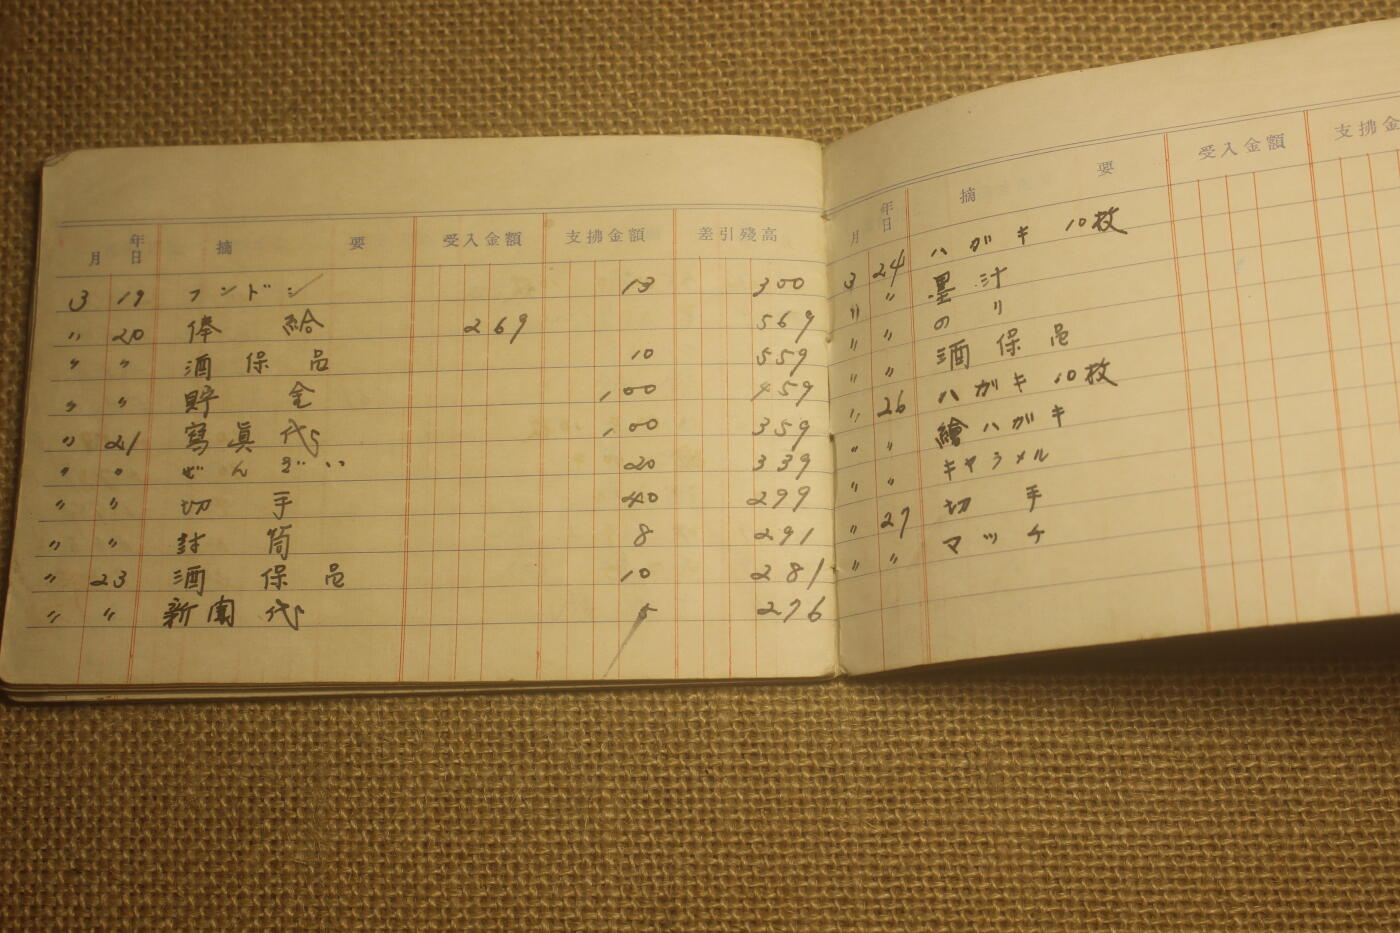 年
月 日 摘 要 受入金額 支拂金額 差引殘高
3 19 フンドシ 13 300
〃 20 俸給 269 569
〃 〃 酒保品 10 559
〃 〃 貯金 100 459
〃 21 寫眞代 100 359
〃 〃 ぜんざい 20 339
〃 〃 切手 40 299
〃 〃 封筒 8 291
〃 23 酒保品 10 281
〃 〃 新聞代 5 276
年
月 日 摘 要 受入金額 支拂金
3 24 ハガキ 10枚
〃 〃 墨汁
〃 〃 のり
〃 〃 酒保品
〃 26 ハガキ 10枚
〃 〃 繪ハガキ
〃 〃 キャラメル
〃 27 切手
〃 〃 マッチ